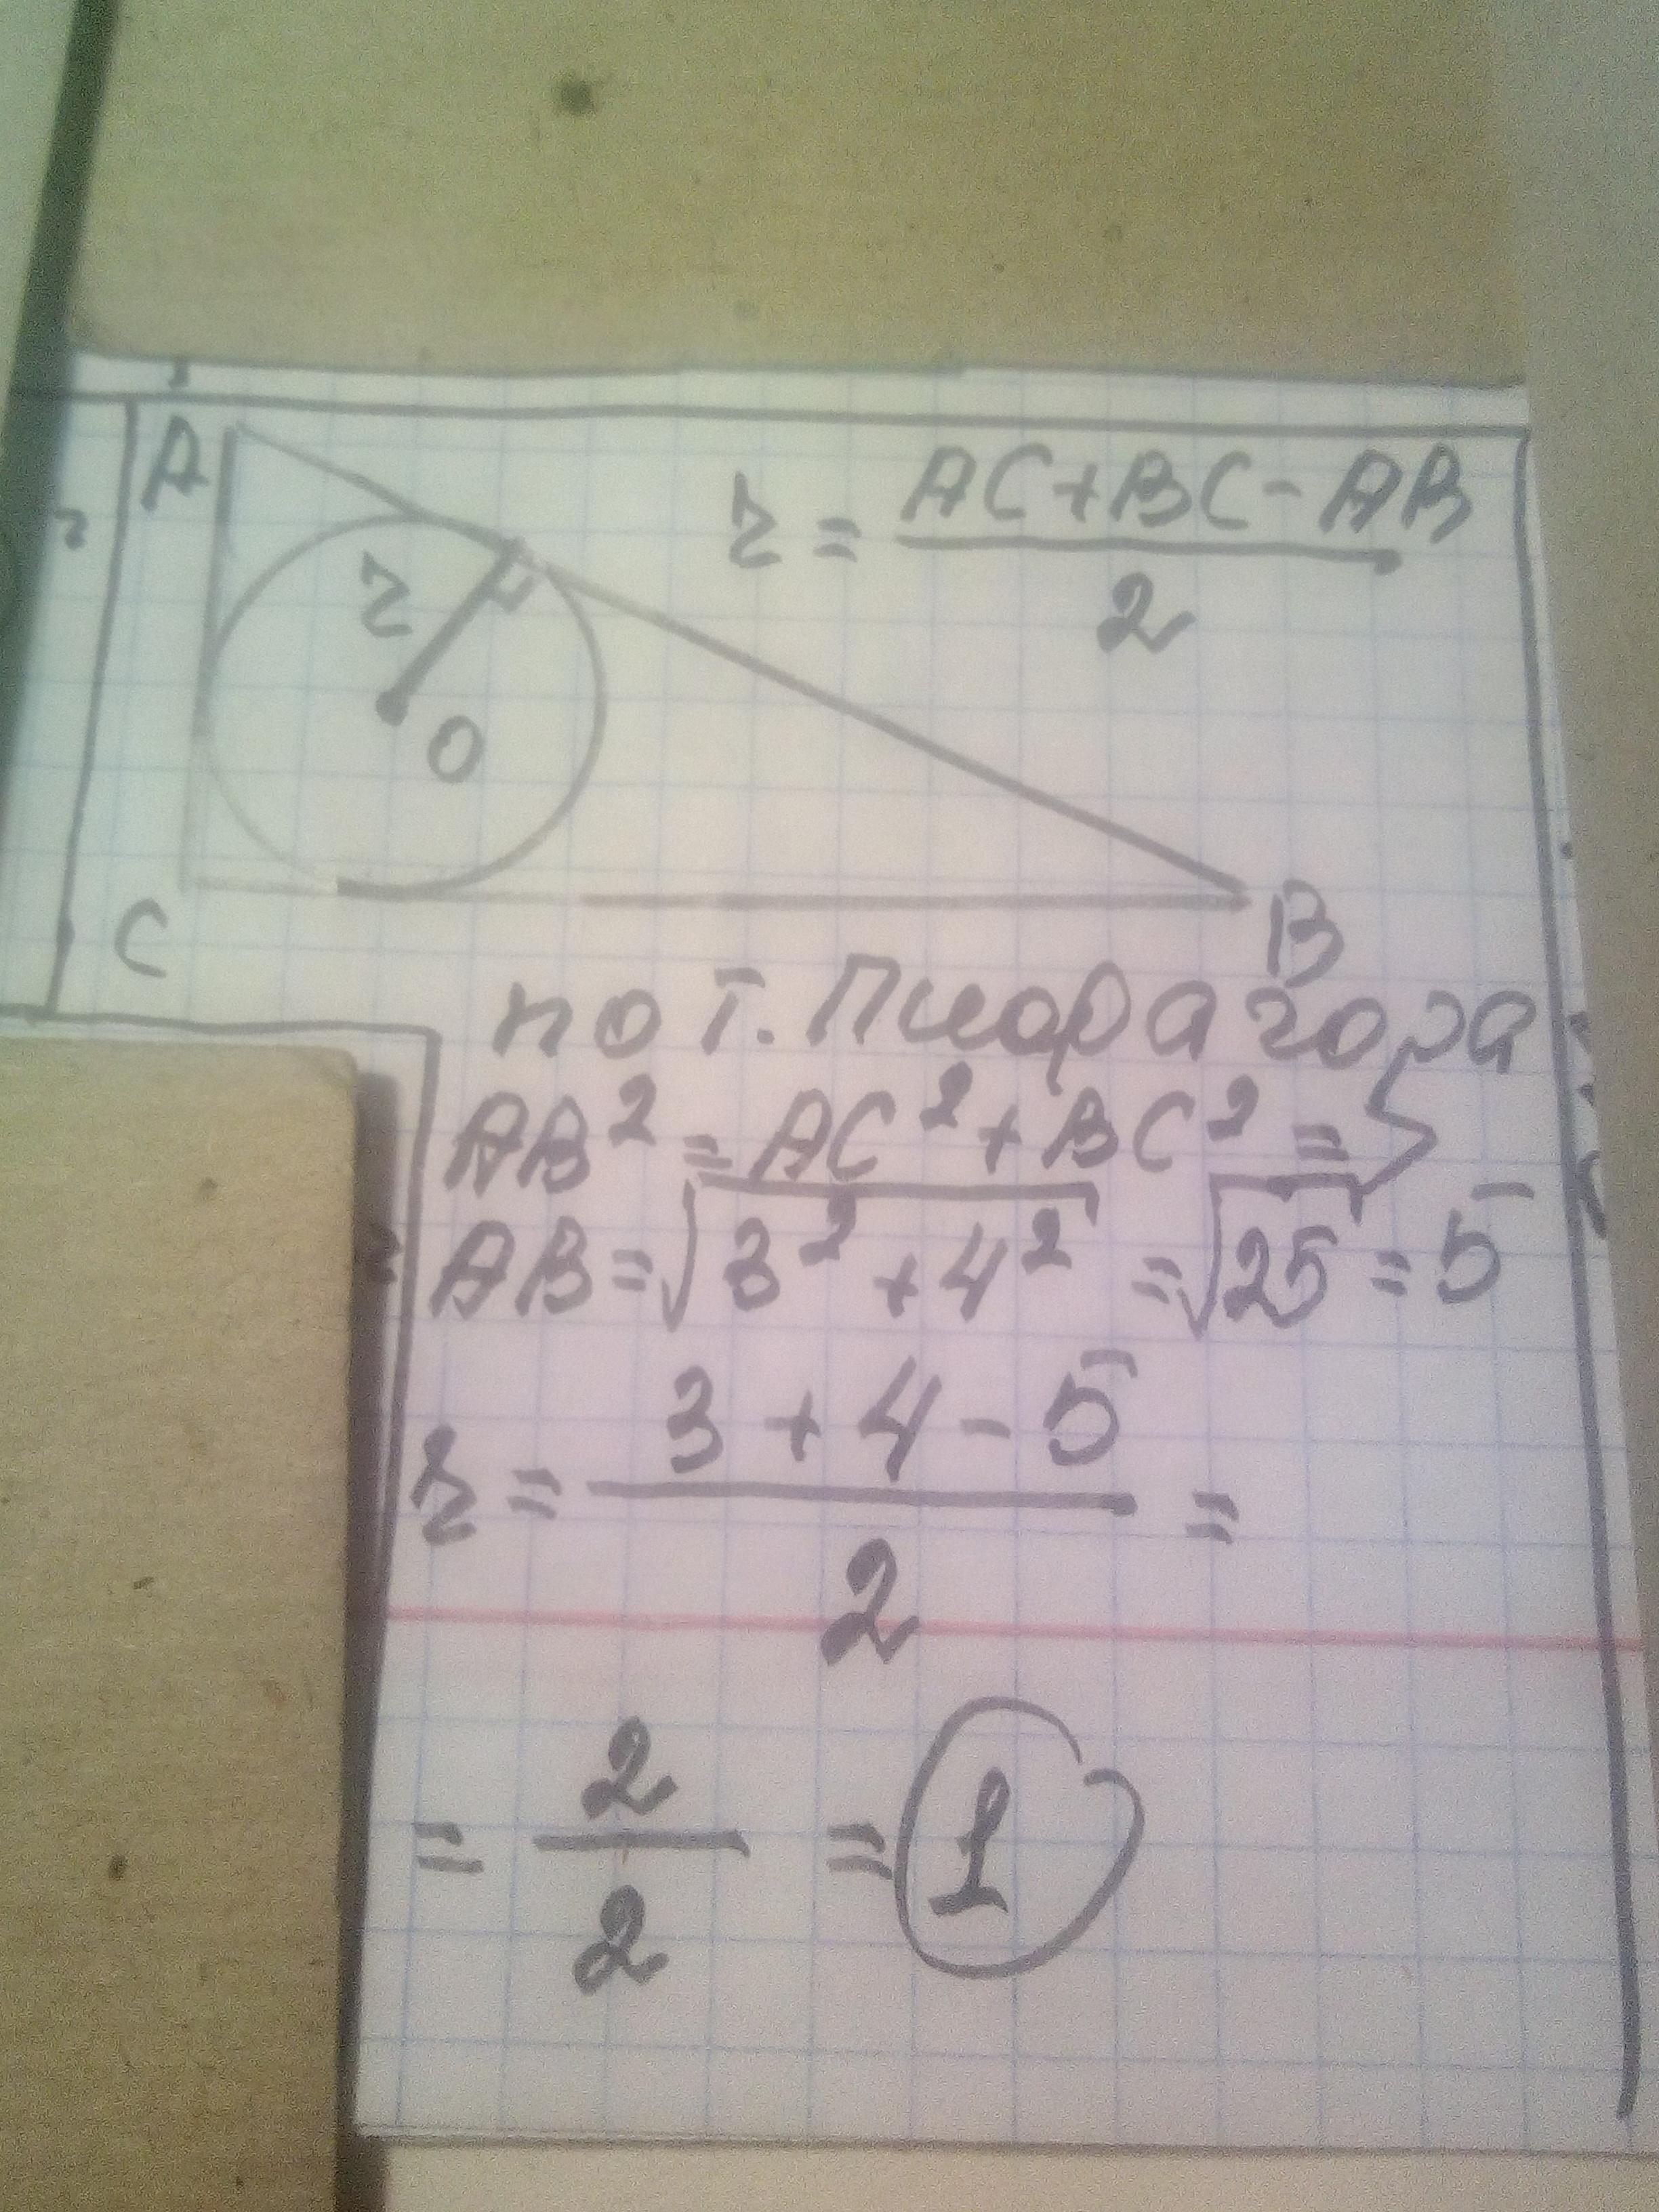 A
r = AC+BC-AB / 2
r
O
C
B
по т. Пифагора
AB² = AC² + BC² =>
AB = √3² + 4² = √25 = 5
r = 3 + 4 - 5 / 2 =
= 2 / 2 = 1